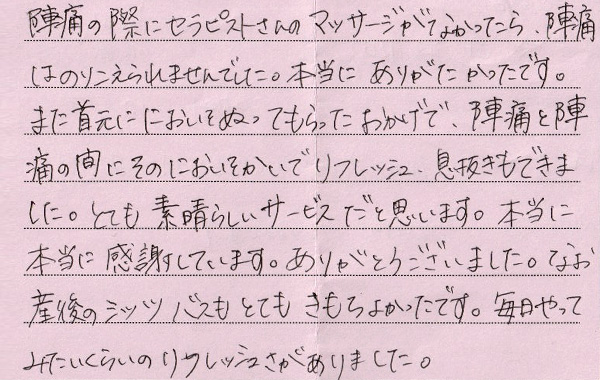 陣痛の際にセラピストさんのマッサージがなかったら、陣痛
はのりこえられませんでした。本当にありがたかったです。
また首元ににおいをぬってもらったおかげで、陣痛と陣
痛の間にそのにおいをかいでリフレッシュ、息抜きもできま
した。とても素晴らしいサービスだと思います。本当に
本当に感謝しています。ありがとうございました。なお
産後のシッツバスもとてもきもちよかったです。毎日やって
みたいくらいのリフレッシュさがありました。